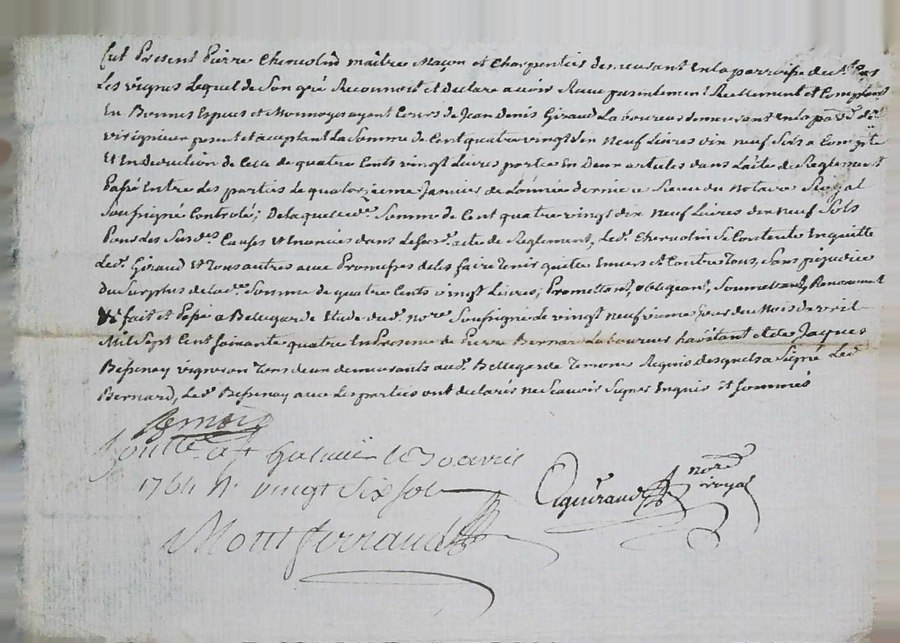 fut Present Pierre Chercolin maître Maçon et Charpentier demeurant en la parroisse de St
Les vignes Lequel de Son gré Reconnoit et declare avoir Reçu presentement Reellement et Comptant
En Bonnes Especes et Monnoye ayant Cours de Jean Denis Giraud Laboureur demeurant en la
virignieu present et acceptant La Somme de Cent quatre vingt dix Neuf Livres dix neuf Sols a Compte
Et En Deduction de Celle de quatre Cents vingt Livres portée En Deux articles dans L'acte de Reglement
Passé Entre Les parties Le quatorzieme Janvier de L'année derniere Receu du Notaire Royal
Soussigné Controlé; De laquelle Somme de Cent quatre vingt dix Neuf Livres dix neuf Sols
Pour Les Susd. Causes Et Enoncés dans Le acte de Reglement, Led. Chercolin Se Contente En quitte
Led. Giraud Et Tous autres avec Promesses de Les faire Tenir quitte Envers Et Contre Tous, Sans prejudice
Du Surplus de Lad. Somme de quatre Cents vingt Livres; Promettant, obligeant, Soumettant, Renonceant
fait et Passé a Bellegarde Etude dud. nore. Soussigné Le vingt neufvieme Jour du Mois d'avril
Mil Sept Cent Soixante quatre En Presence de Pierre Bernard Laboureur habitant et de Jaques
Bessenay vigneron Tous deux demeurants aud. Bellegarde Temoins Requis desquels a Signé Led.
Bernard, Led. Bessenay avec Les parties ont declarés ne Scavoir Signer Enquis Et Sommés
Conttlé a St Galmier le 30 avril
1764 R. vingt Six sols
Montferrand
nore. royal